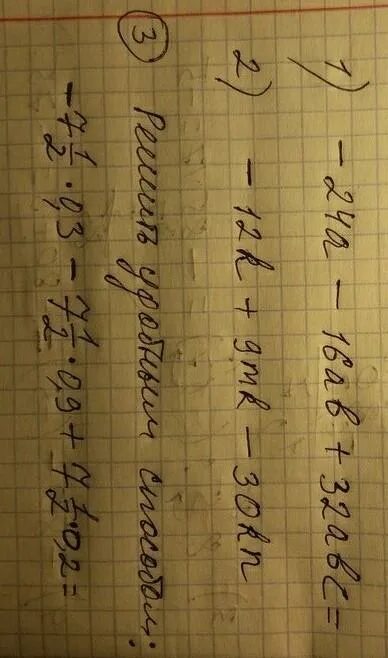 1) - 24a - 16ab + 32abc =
2) - 12k + 9mk - 30kn
③ Решить удобным способом:
- 7 1/2 · 0,3 - 7 1/2 · 0,9 + 7 1/2 · 0,2 =